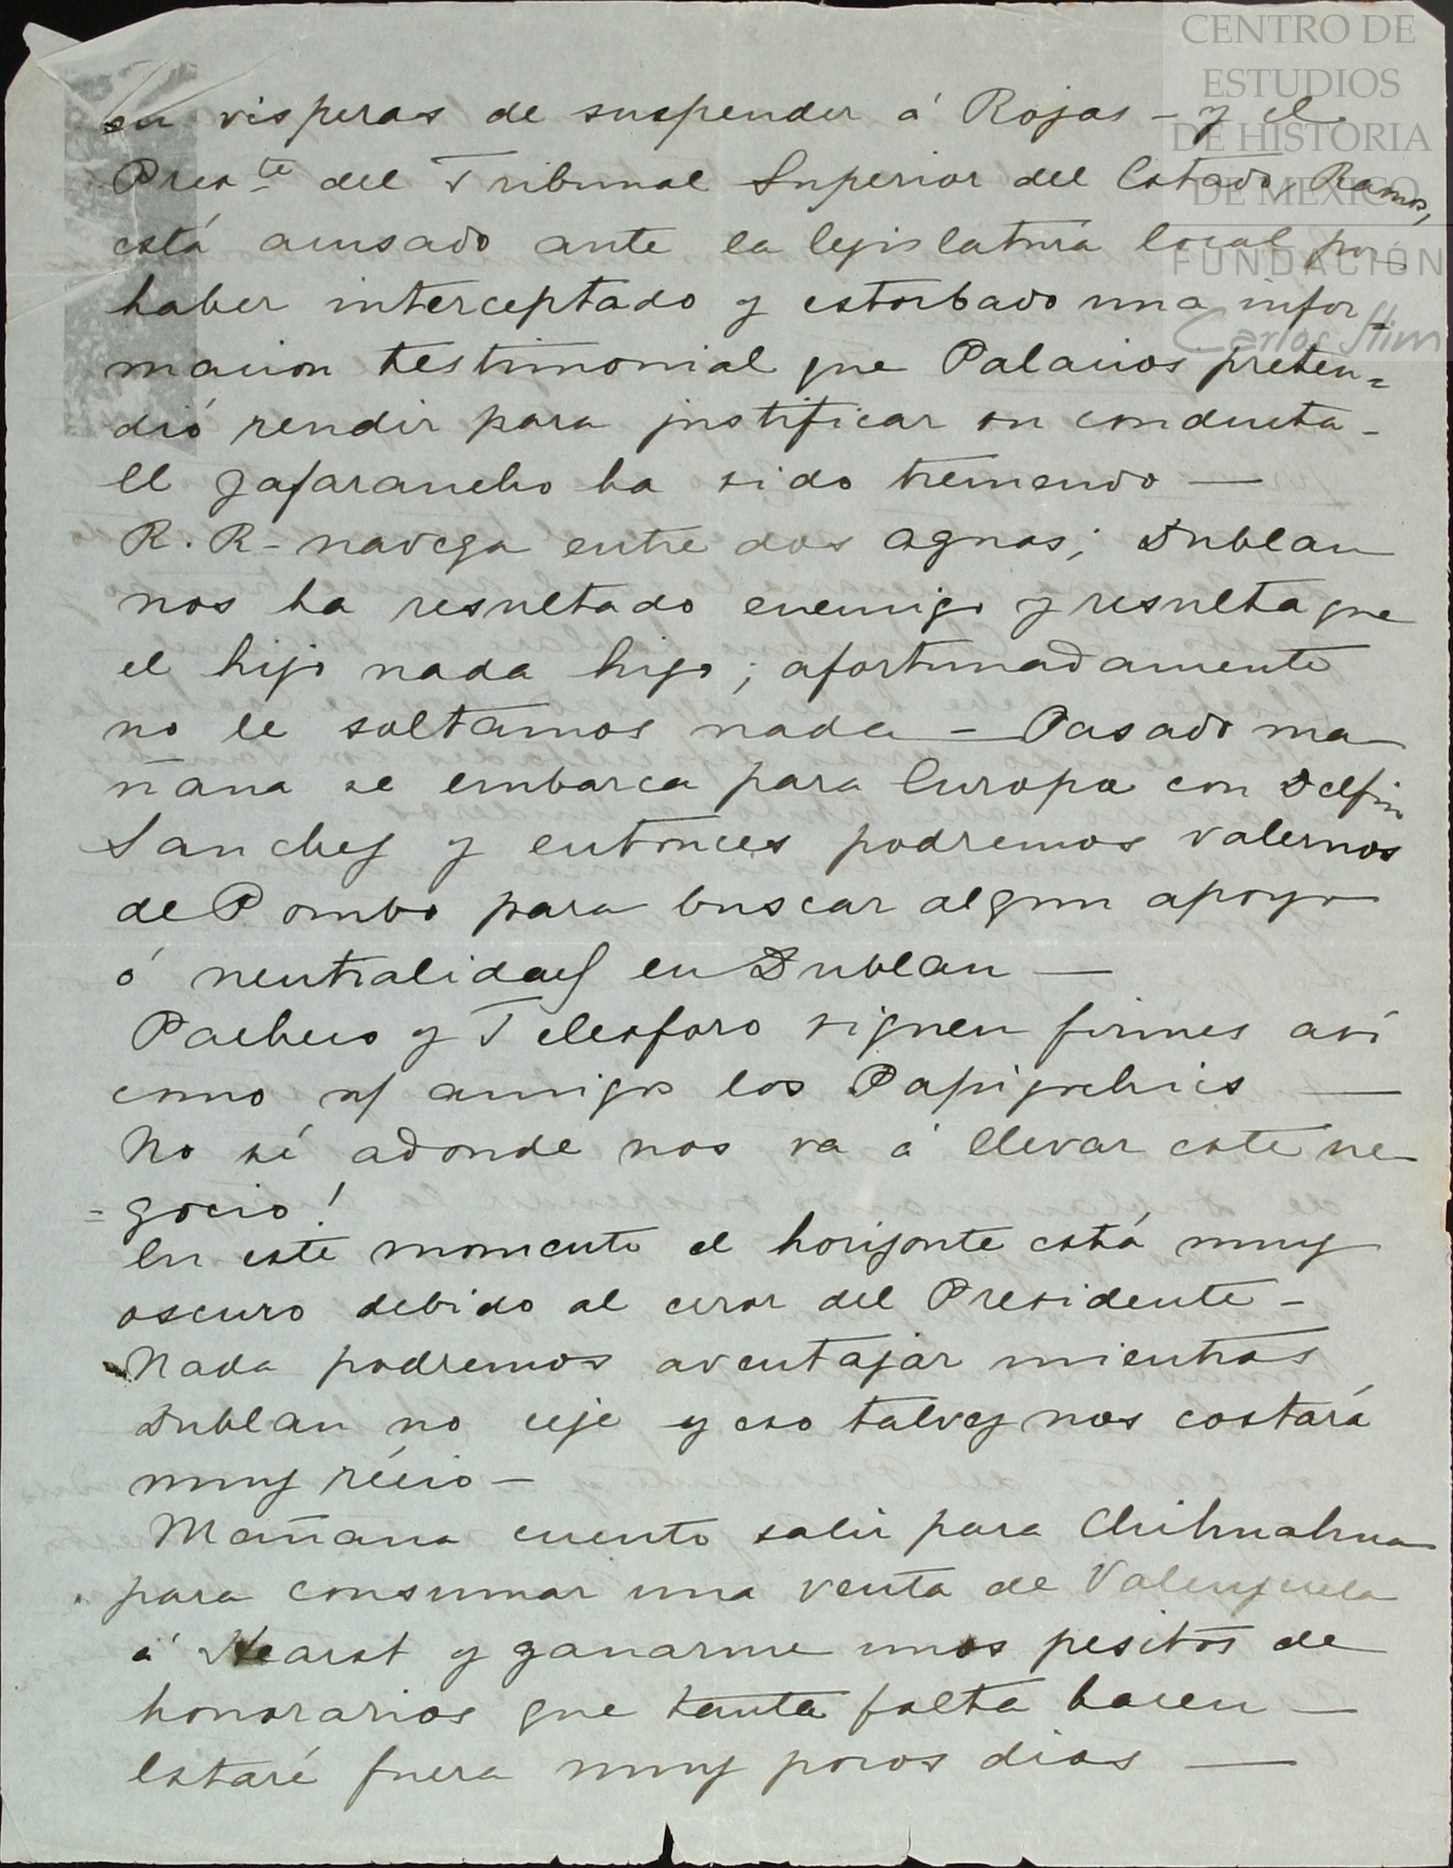 CENTRO DE
ESTUDIOS
DE HISTORIA
DE MEXICO
FUNDACIÓN
Carlos Slim
en visperas de suspender á Rojas - y el
Pres.te del Tribunal Superior del Estado, Ramos,
está acusado ante la lejislatura local por
haber interceptado y estorbado una infor-
macion testimonial que Palacios preten=
dió rendir para justificar su conducta -
El zafarancho ha sido tremendo —
R. R - navega entre dos aguas; Dublan
nos ha resultado enemigo y resulta que
el hijo nada hijo; afortunadamente
no le soltamos nada — Pasado ma-
ñana se embarca para Europa con Delfin
Sanchez y entonces podremos valernos
de Pombo para buscar algun apoyo
ó neutralidad en Dublan —
Pacheco y Telesforo siguen firmes asi
como ns/ amigos los Papigochis —
No sé adonde nos va á llevar este ne-
= gocio!
En este momento el horizonte está muy
oscuro debido al error del Presidente -
Nada podremos aventajar mientras
Dublan no ceje y eso talvez nos costará
muy récio -
Mañana cuento salir para Chihuahua
para consumar una venta de Valenzuela
á Hearst y ganarme unos pesitos de
honorarios que tanta falta hacen —
Estaré fuera muy pocos dias —